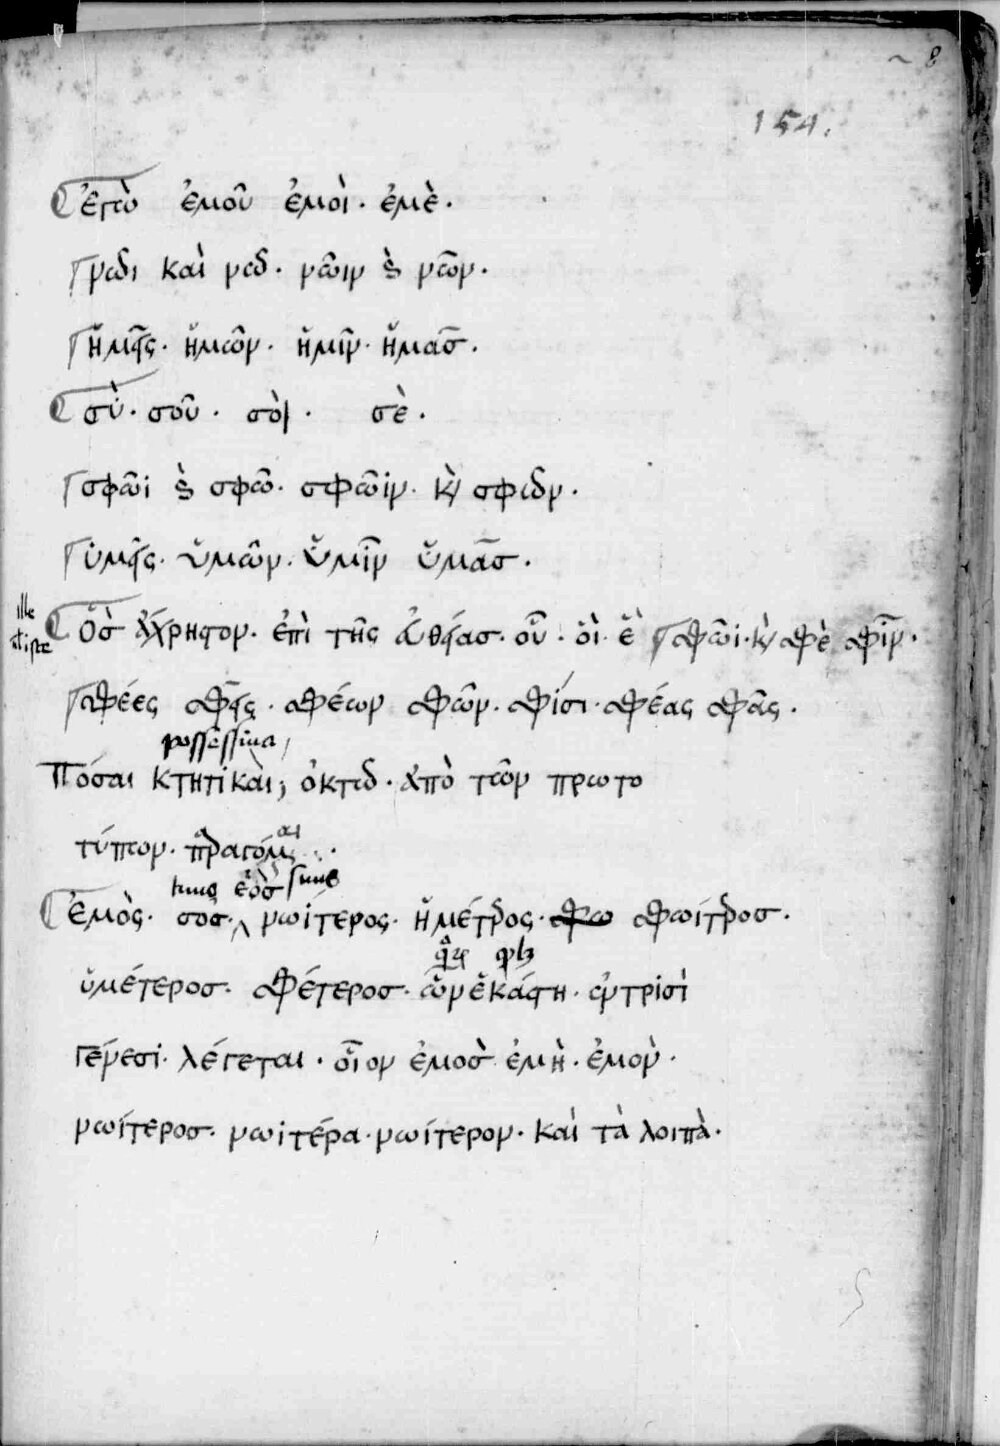 8
154.
ἐγὼ ἐμοῦ ἐμοὶ· ἐμὲ·
νῶι καὶ νώ· νῶιν ἢ νῶν·
ἡμεῖς· ἡμῶν· ἡμῖν· ἡμᾶσ·
σὺ· σοῦ· σοὶ· σὲ·
σφῶι ἢ σφῶ· σφῶιν· κὴ σφων·
ὑμεῖς· ὑμῶν· ὑμῖν ὑμᾶσ·
ille
Ὃσ ἄχρηστον· ἐπὶ τῆς εὐθείασ· οὗ· οἷ· ἓ σφῶι· κὴ σφὲ σφῖν·
σφέες σφεῖς· σφέων σφῶν· σφίσι· σφέας σφᾶς·
possessiua
Πόσαι κτητικαὶ; ὀκτώ· ἀπὸ τῶν πρωτο
τύπων·
tuus ἑὸσ suus
ἐμὸς· σὸσ· νωίτερος· ἡμέτερος· σφωίτεροσ·
ὑμέτεροσ· σφέτεροσ· ὧν ἑκάστη· ἐν τρισὶ
γένεσι· λέγεται· οἷον ἐμοσ· ἐμὴ· ἐμὸν·
νωίτεροσ· νωιτέρα· νωίτερον· καὶ τὰ λοιπὰ·